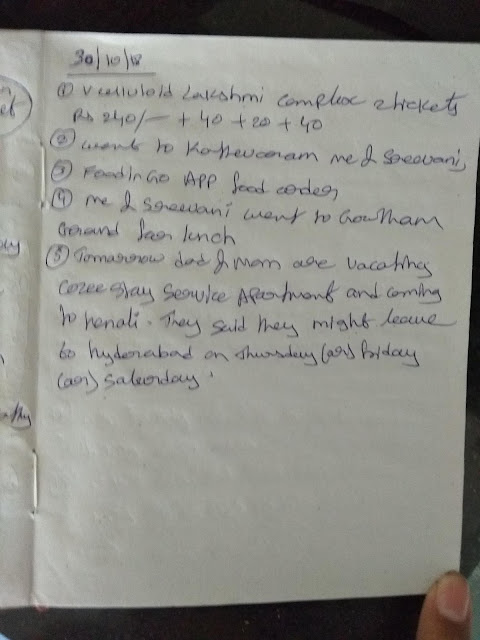 30/10/18
① V celluloid Lakshmi complex 2 tickets
Rs 240/- + 40 + 20 + 40
② went to Kathevaram me & Sreevani,
③ FoodinGo APP food order,
④ me & Sreevani went to Gowtham
Grand for lunch
⑤ Tomorrow dad & mom are vacating
Cozee stay Service Apartment and coming
to tenali. They said they might leave
to hyderabad on thursday (or) friday
(or) saturday.